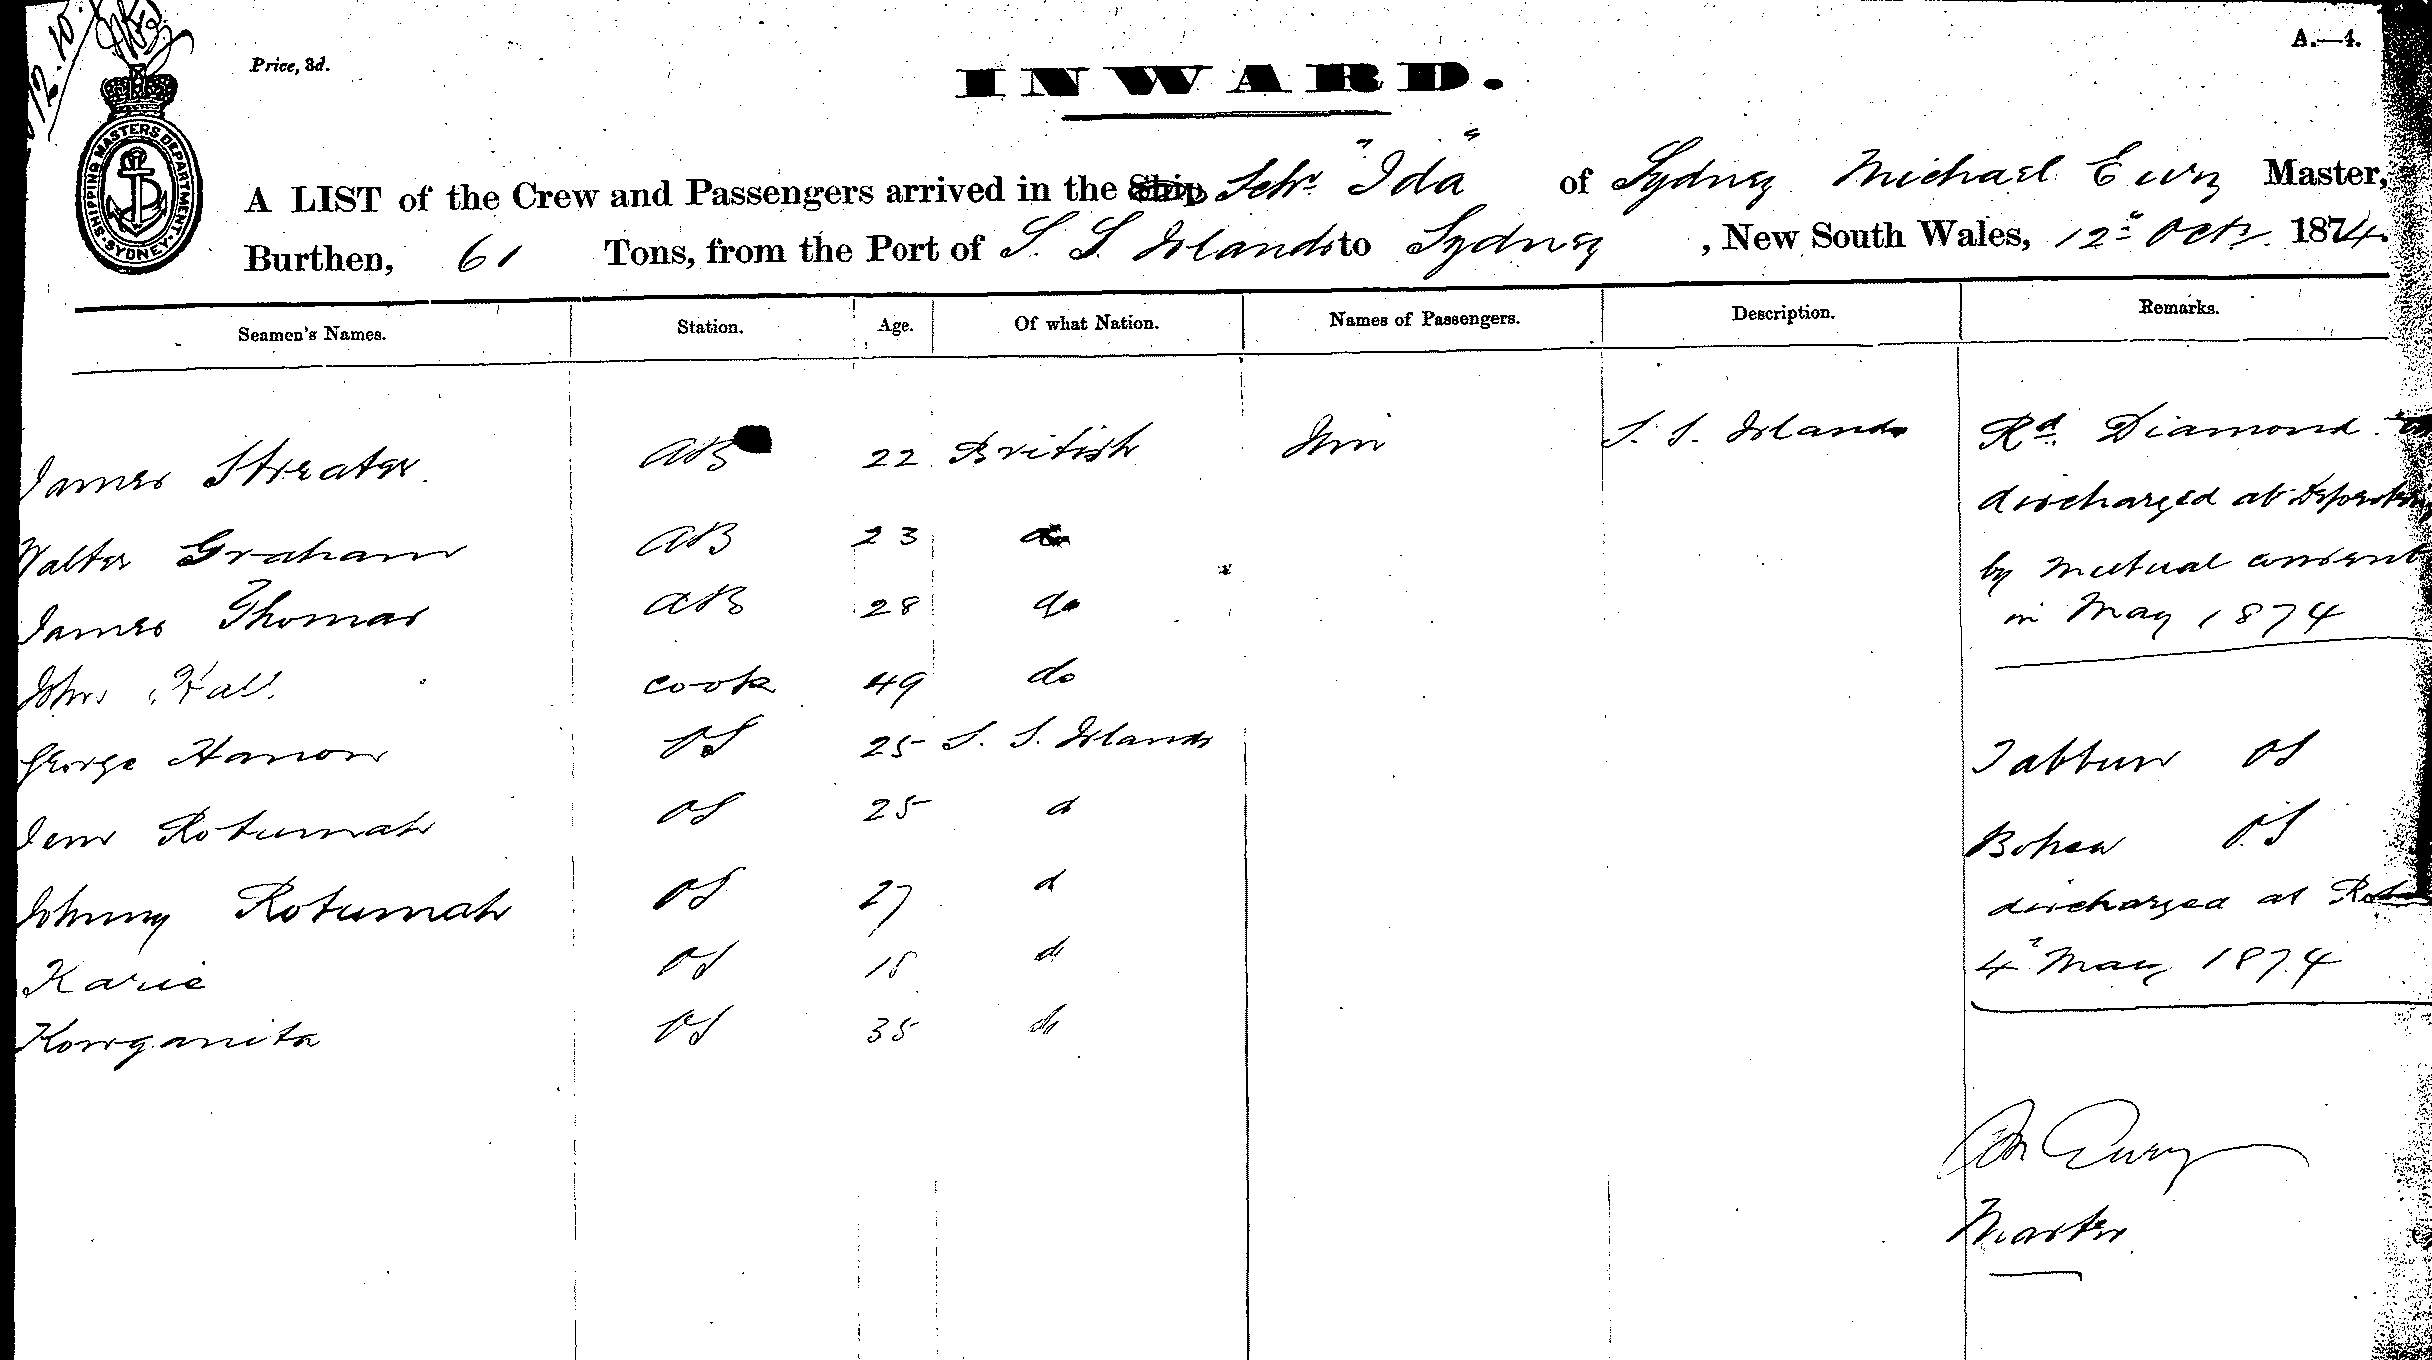 12.10.
Price, 3d.
A.—4.
INWARD.
SHIPPING MASTERS DEPARTMENT. SYDNEY.
A LIST of the Crew and Passengers arrived in the Ship Schr "Ida" of Sydney Michael Eury Master,
Burthen, 61 Tons, from the Port of S. S. Islands to Sydney, New South Wales, 12th Octr. 1874.
Seamen's Names. Station. Age. Of what Nation. Names of Passengers. Description. Remarks.
James Streater AB 22 British Jim S. S. Islands Rd. Diamond
discharged at
Walter Graham AB 23 do
by mutual consent
James Thomas AB 28 do in May 1874
John Hall cook 49 do
George Hanow OS 25 S. S. Islands Tabbun OS
Jem Rotumah OS 25 d Bohea OS
Johnny Rotumah OS 27 d discharged at
Karie OS 18 d 4th May 1874
Korganita OS 35 do
M Eury
Master